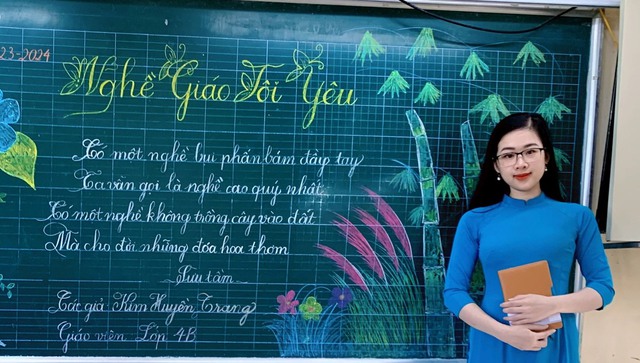 23-2024
Nghề Giáo Tôi Yêu
Có một nghề bụi phấn bám đầy tay
Ta vẫn gọi là nghề cao quý nhất
Có một nghề không trồng cây vào đất
Mà cho đời những đóa hoa thơm
Sưu tầm
Tác giả Kim Huyền Trang
Giáo viên Lớp 4B